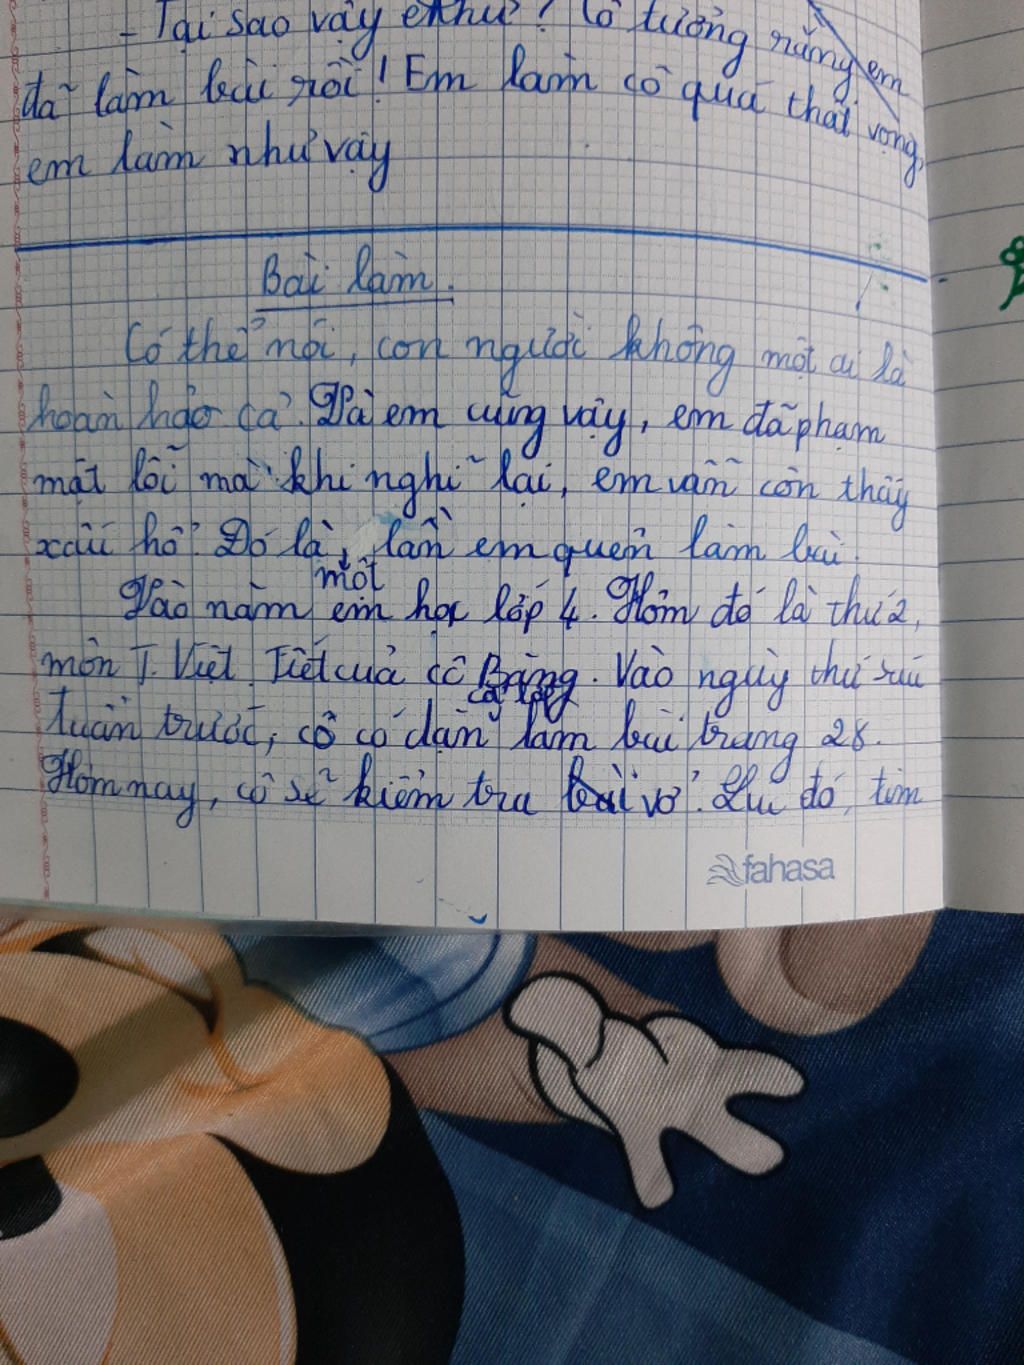 - Tại sao vậy em hử? Cô tưởng rằng em
đã làm bài rồi! Em làm cô quá thất vọng,
em làm như vậy
Bài làm.
Có thể nói, con người không một ai là
hoàn hảo cả. Và em cũng vậy, em đã phạm
một lỗi mà khi nghĩ lại, em vẫn còn thấy
xấu hổ. Đó là, một lần em quên làm bài.
Vào năm em học lớp 4. Hôm đó là thứ 2,
môn T. Việt. Tiết của cô Bằng. Vào ngày thứ sáu
tuần trước, cô có dặn cả lớp làm bài trang 28.
Hôm nay, cô sẽ kiểm tra bài vở. Lúc đó, tim
fahasa